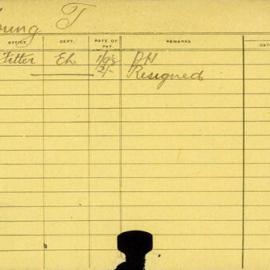 Young T
DEPT. RATE OF PAY REMARKS
Fitter Eh 1/98 BH
2/- Resigned